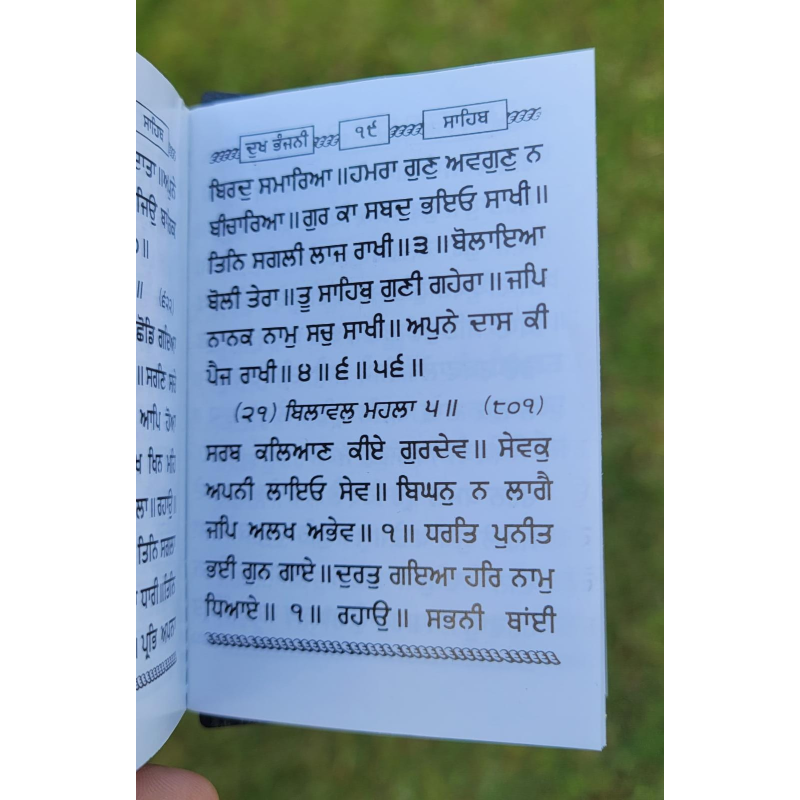 ਸਾਹਿਬ
ਛੋਡਿ ਗਇਆ
ਆਪਿ ਹੋਆ
ਰਹਾਉ॥
ਤਿਨਿ ਸਗਲਾ
ਧਾਰੀ॥ਤਿਨਿ
ਪ੍ਰਭਿ ਅਪਨਾ
ਦੁਖ ਭੰਜਨੀ ੧੯ ਸਾਹਿਬ
ਬਿਰਦੁ ਸਮਾਰਿਆ॥ਹਮਰਾ ਗੁਣੁ ਅਵਗੁਣੁ ਨ
ਬੀਚਾਰਿਆ॥ਗੁਰ ਕਾ ਸਬਦੁ ਭਇਓ ਸਾਖੀ॥
ਤਿਨਿ ਸਗਲੀ ਲਾਜ ਰਾਖੀ॥੩॥ਬੋਲਾਇਆ
ਬੋਲੀ ਤੇਰਾ॥ਤੂ ਸਾਹਿਬੁ ਗੁਣੀ ਗਹੇਰਾ॥ਜਪਿ
ਨਾਨਕ ਨਾਮੁ ਸਚੁ ਸਾਖੀ॥ਅਪੁਨੇ ਦਾਸ ਕੀ
ਪੈਜ ਰਾਖੀ॥੪॥੬॥੫੬॥
(੨੧) ਬਿਲਾਵਲੁ ਮਹਲਾ ੫॥ (੮੦੧)
ਸਰਬ ਕਲਿਆਣ ਕੀਏ ਗੁਰਦੇਵ॥ ਸੇਵਕੁ
ਅਪਨੀ ਲਾਇਓ ਸੇਵ॥ਬਿਘਨੁ ਨ ਲਾਗੈ
ਜਪਿ ਅਲਖ ਅਭੇਵ॥੧॥ ਧਰਤਿ ਪੁਨੀਤ
ਭਈ ਗੁਨ ਗਾਏ॥ਦੁਰਤੁ ਗਇਆ ਹਰਿ ਨਾਮੁ
ਧਿਆਏ॥ ੧॥ ਰਹਾਉ॥ ਸਭਨੀ ਥਾਂਈ